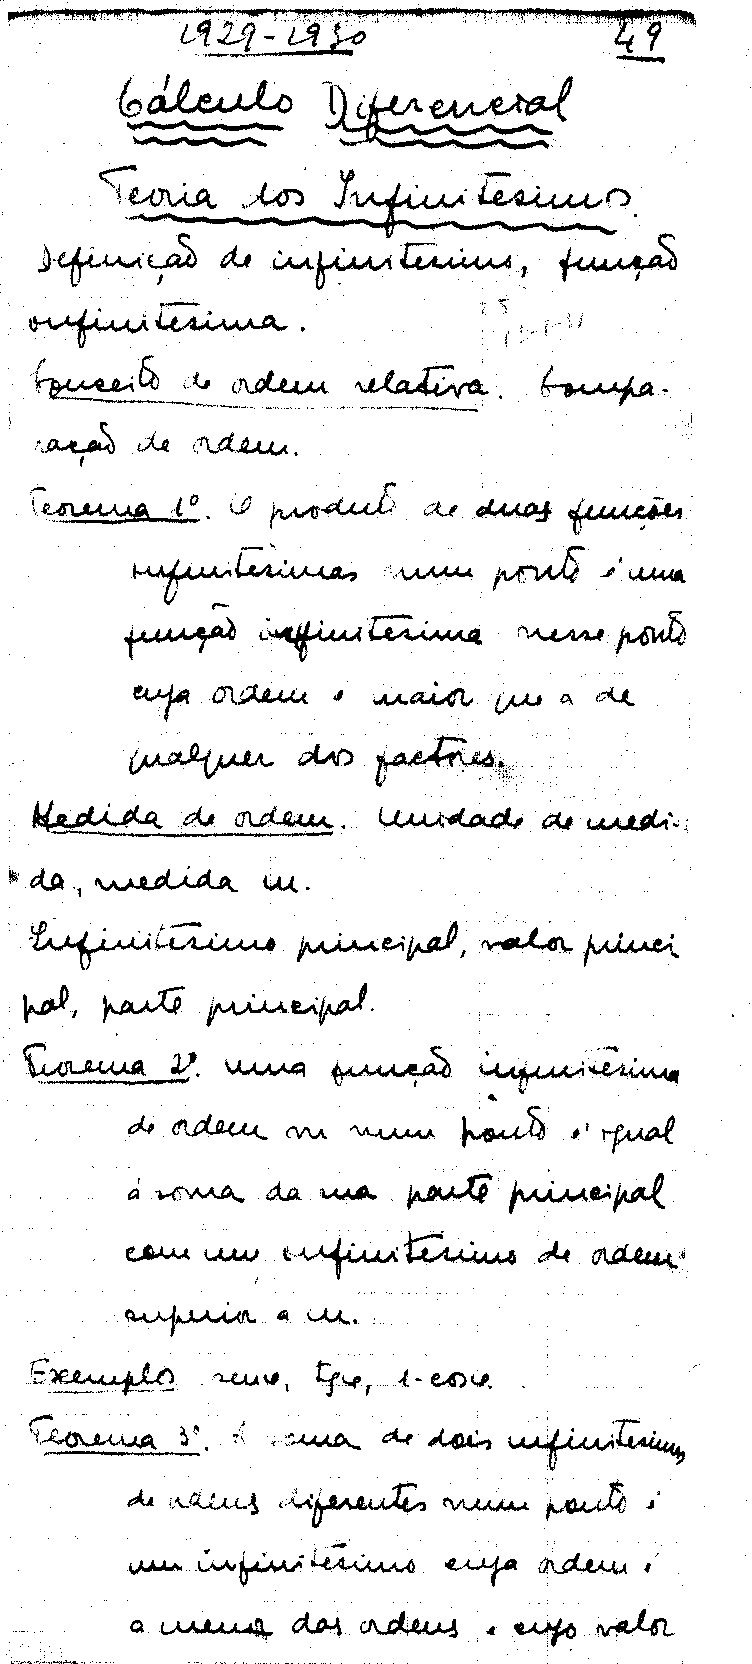 1929-1930 49
Cálculo Diferencial
Teoria dos Infinitésimos.
Definição de infinitésimo, função
infinitésima.
Conceito de ordem relativa. Compa-
ração de ordem.
Teorema 1º. O produto de duas funções
infinitésimas num ponto é uma
função infinitésima nesse ponto
cuja ordem é maior que a de
qualquer dos factores.
Medida de ordem. Unidade de medi-
da, medida m.
Infinitésimo principal, valor princi
pal, parte principal.
Teorema 2º. Uma função infinitésima
de ordem m num ponto é igual
á soma da sua parte principal
com um infinitésimo de ordem
superior a m.
Exemplos senx, tgx, 1-cosx
Teorema 3º. A soma de dois infinitésimos
de ordens diferentes num ponto é
um infinitésimo cuja ordem é
a menor das ordens e cujo valor